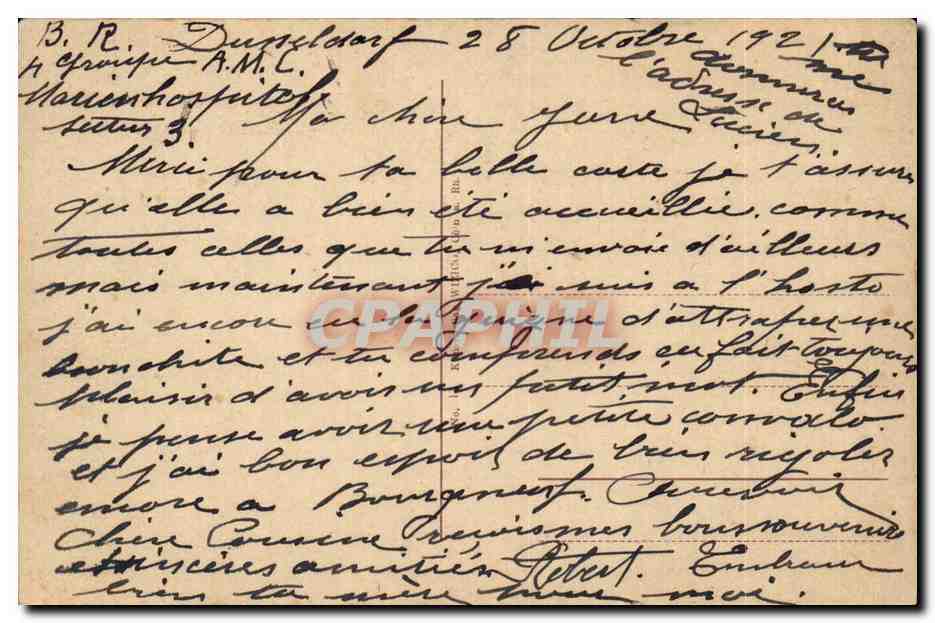 B. R. Dusseldorf 28 Octobre 1921
4 groupe A.M.C.
donneras me
l'adresse de
Lucien.
Marienhospital
3 Ma chère
Merci pour ta belle carte je t'assure
qu'elle a bien été accueillie comme
toutes celles que tu m'envoie d'ailleurs
mais maintenant je suis à l'hosto
j'ai encore eu la guigne d'attraper une
bronchite et tu comprends ça fait toujours
plaisir d'avoir un petit mot. Enfin
je pense avoir une petite convalo
et j'ai bon espoir de bien rigoler
encore a Bourgneuf. Au revoir
Chère Cousine mes bons souvenirs
et sincères amitiés Robert. Embrasse
bien ta mère pour moi.
CPAPHIL